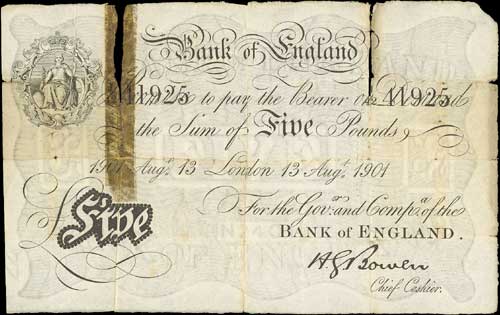 Bank of England
41925 to pay the Bearer on 41925
the Sum of Five Pounds
1901 Augt. 13 London 13 Augt. 1901
For the Govr. and Compa. of the
BANK OF ENGLAND.
Five
HG Bowen
Chief Cashier.